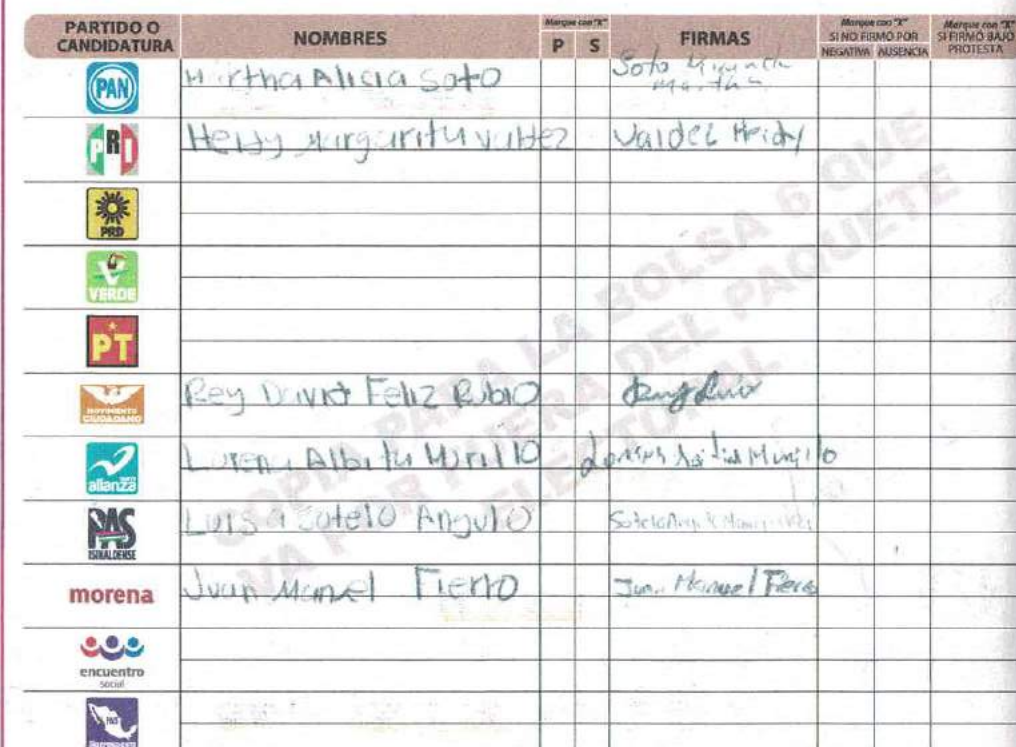 PARTIDO O CANDIDATURA
NOMBRES
Marque con "X"
P S
FIRMAS
Marque con "X"
SI NO FIRMÓ POR
NEGATIVA AUSENCIA
Marque con "X"
SI FIRMÓ BAJO PROTESTA
PAN
Martha Alicia Soto
Soto
PRI
Heidy Margarita Valdez
Valdez Heidy
PRD
VERDE
PT
MOVIMIENTO CIUDADANO
Rey David Feliz Rubio
alianza
Lorena Albita Murillo
Murillo
PAS
SINALOENSE
Luisa Sotelo Angulo
Sotelo
morena
Juan Manuel Fierro
Juan Manuel Fierro
encuentro
social
COPIA PARA LA BOLSA 6 QUE
VA POR FUERA DEL PAQUETE
ELECTORAL